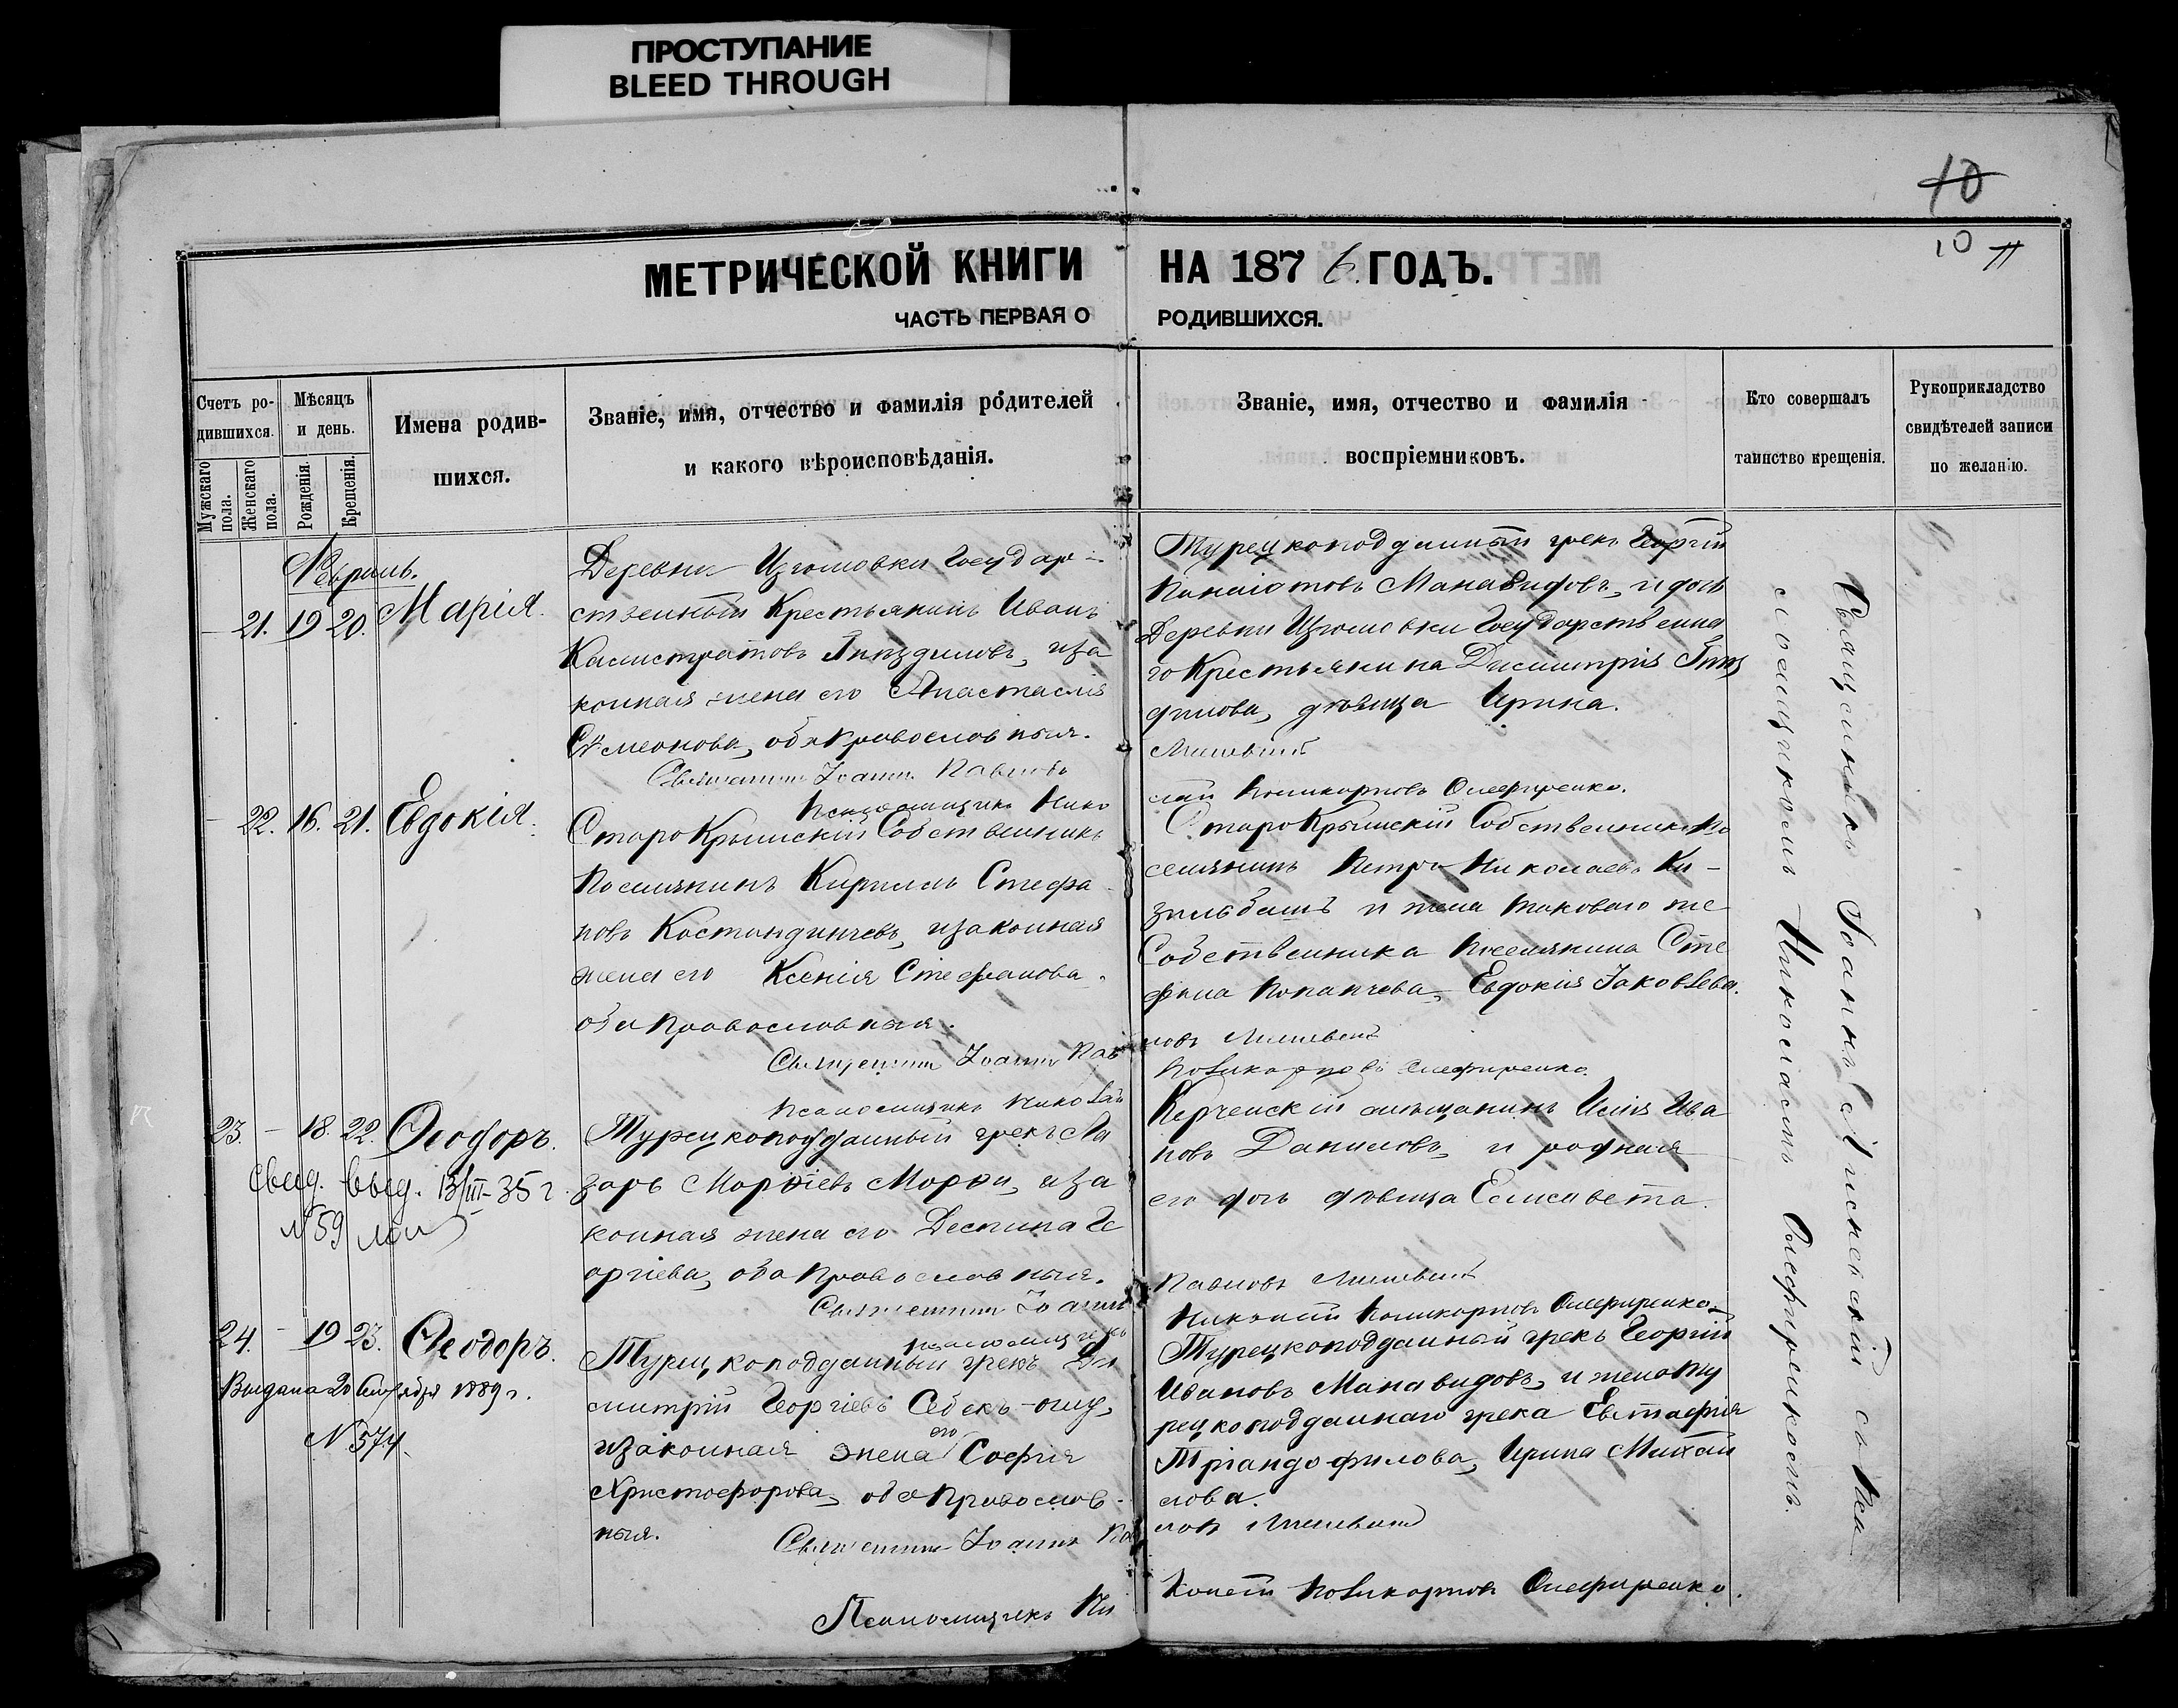 ПРОСТУПАНИЕ
BLEED THROUGH
10
10 11
МЕТРИЧЕСКОЙ КНИГИ НА 1876 ГОДЪ.
ЧАСТЬ ПЕРВАЯ О РОДИВШИХСЯ.
Счетъ ро-
дившихся.
Мужскаго пола.
Женскаго пола.
Мѣсяцъ
и день.
Рожденія.
Крещенія.
Имена родив-
шихся.
Званіе, имя, отчество и фамилія родителей
и какого вѣроисповѣданія.
Званіе, имя, отчество и фамилія
воспріемниковъ.
Кто совершалъ
таинство крещенія.
Рукоприкладство
свидѣтелей записи
по желанію.
Февраль.
21. 19 20. Марія.
Деревни Изюмовки Государ-
ственный Крестьянинъ Иванъ
Калистратовъ Гнѣздиловъ, иза
конная жена его Анастасія
Сѵмеонова, оба православныя.
Священникъ Іоаннъ Павловъ
Псаломщикъ Нико
Турецкоподданный грекъ Георгій
Панаіотовъ Манавидовъ, и дочь
Деревни Изюмовки Государственна
го Крестьянина Димитрія Гнѣз
дилова, дѣвица Ирина.
лай Поликарповъ Олефиренко.
22. 16. 21. Евдокія.
СтароКрымскій Собственникъ
Поселянинъ Кириллъ Стефа
новъ Костандинчевъ, изаконная
жена его Ксенія Стефанова,
оба православныя.
Священникъ Іоаннъ Пав
Псаломщикъ Николай
СтароКрымскій Собственникъ По
селянинъ Петръ Николаевъ Ки-
зильбашъ и жена таковаго же
Собственника поселянина Сте
фана Копанчева, Евдокія Іаковлева.
Поликарповъ Олефиренко.
23. - 18. 22. Ѳеодоръ.
Свид. выд. 13/III-35 г.
№59
Турецкоподданный грекъ Ла
зарь
конная жена его Деспина Ге
оргіева, оба православныя.
Священникъ Іоаннъ
псаломщикъ
Керченскій мѣщанинъ Илія Ива
новъ Даниловъ, и родная
его дочь дѣвица Елисавета.
Павловъ
Николай Поликарповъ Олефиренко.
24. - 19 23. Ѳеодоръ.
Выдана 20 1889 г.
№574.
Турецкоподданный грекъ Ди
митрій Георгіевъ
изаконная жена его Софія
Христофорова, оба православ-
ныя.
Священникъ Іоаннъ Пав
Псаломщикъ Ни
Турецкоподданный грекъ Георгій
Ивановъ Манавидовъ, и жена Ту
рецкоподданнаго грека Евстафія
Тріандофилова, Ирина Михаи
лова.
колай Поликарповъ Олефиренко.
Священникъ Іоаннъ съ Пса
ломщикомъ Николаемъ Олефиренкомъ.